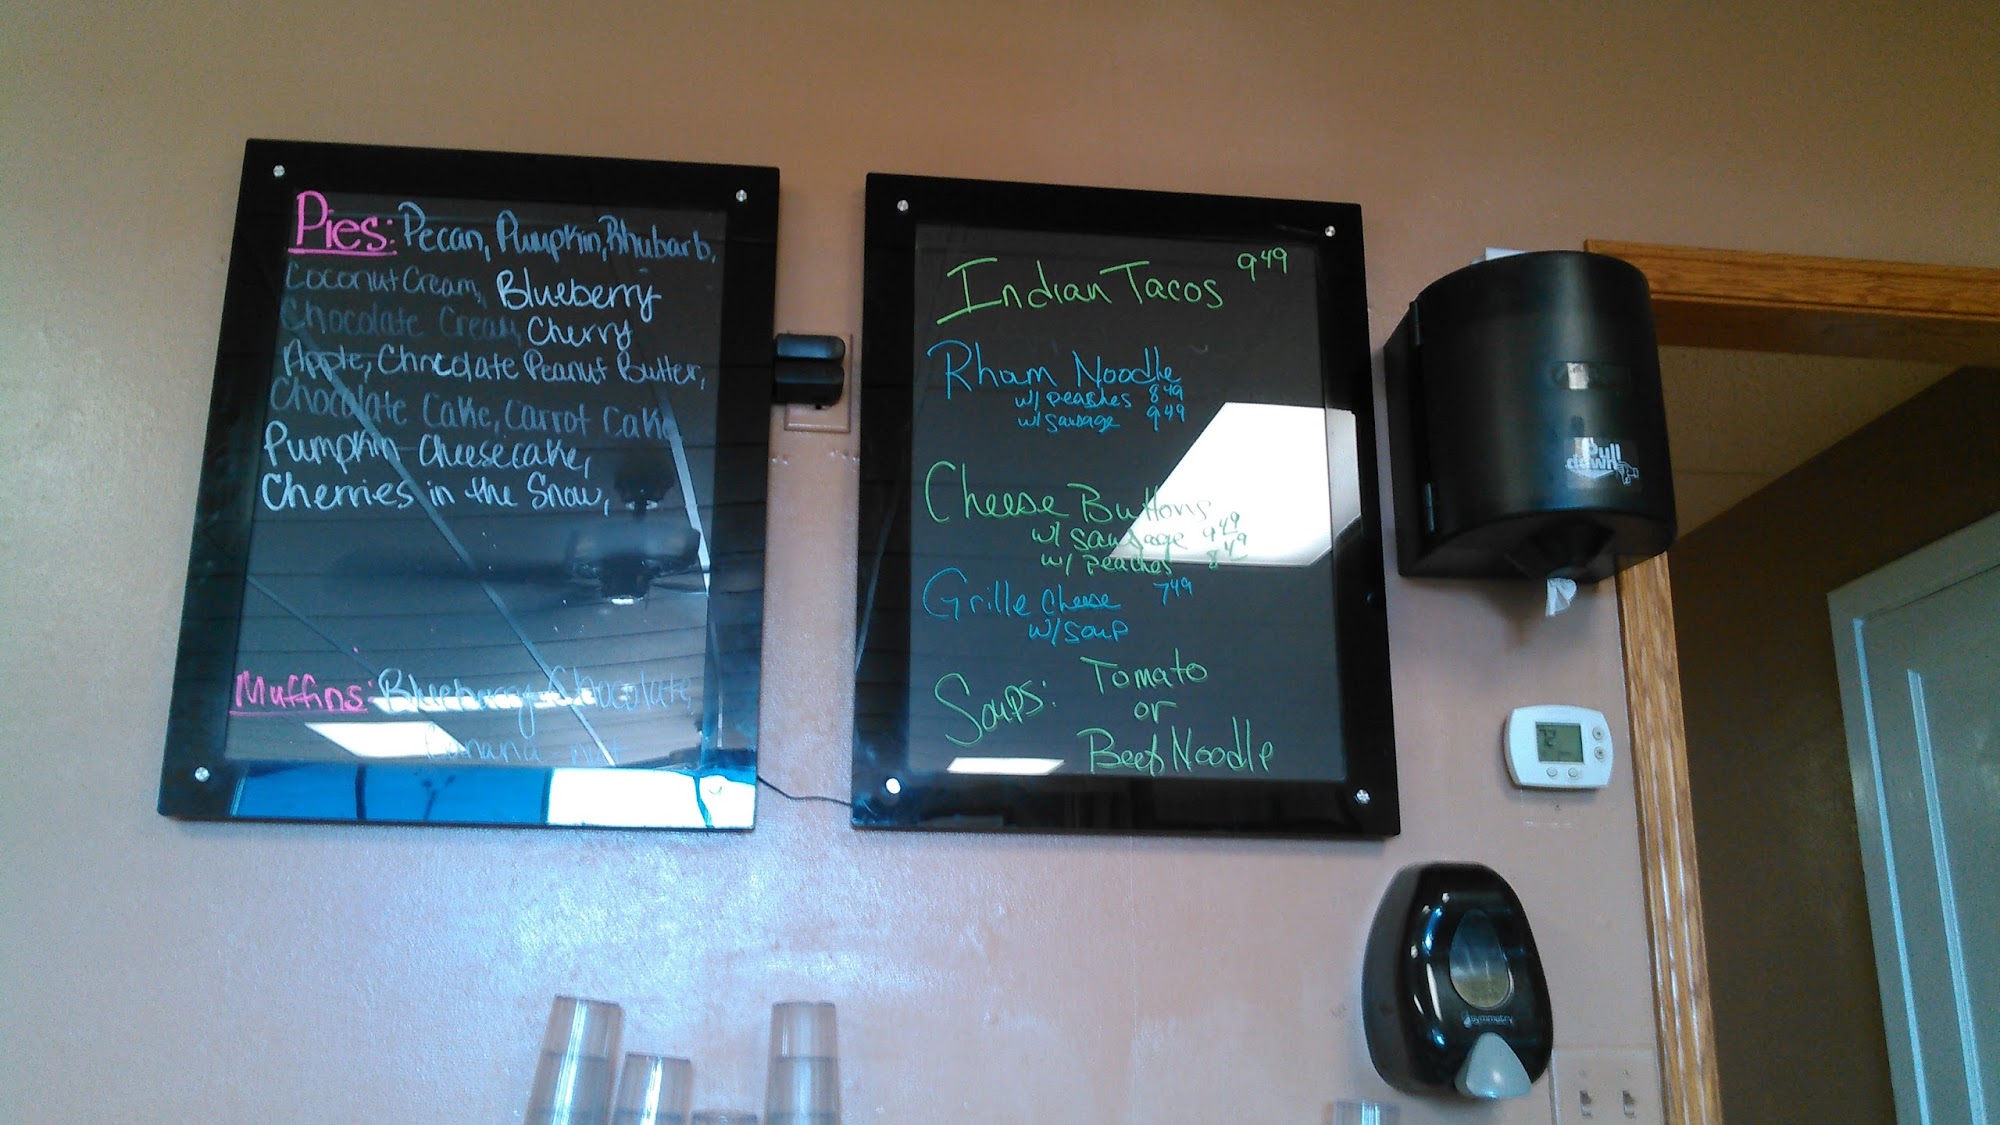 Pies: Pecan, Pumpkin, Rhubarb,
Coconut Cream, Blueberry
Chocolate Cream, Cherry
Apple, Chocolate Peanut Butter,
Chocolate Cake, Carrot Cake
Pumpkin Cheesecake,
Cherries in the Snow,
Muffins: Blueberry Chocolate
banana nut
Indian Tacos 9.49
Rham Noodle
w/ peaches 8.49
w/ sausage 9.49
Cheese Buttons
w/ sausage 9.49
w/ peaches 8.49
Grille Cheese 7.49
w/ soup
Soups: Tomato
or
Beef Noodle
Pull
down
72
symmetry